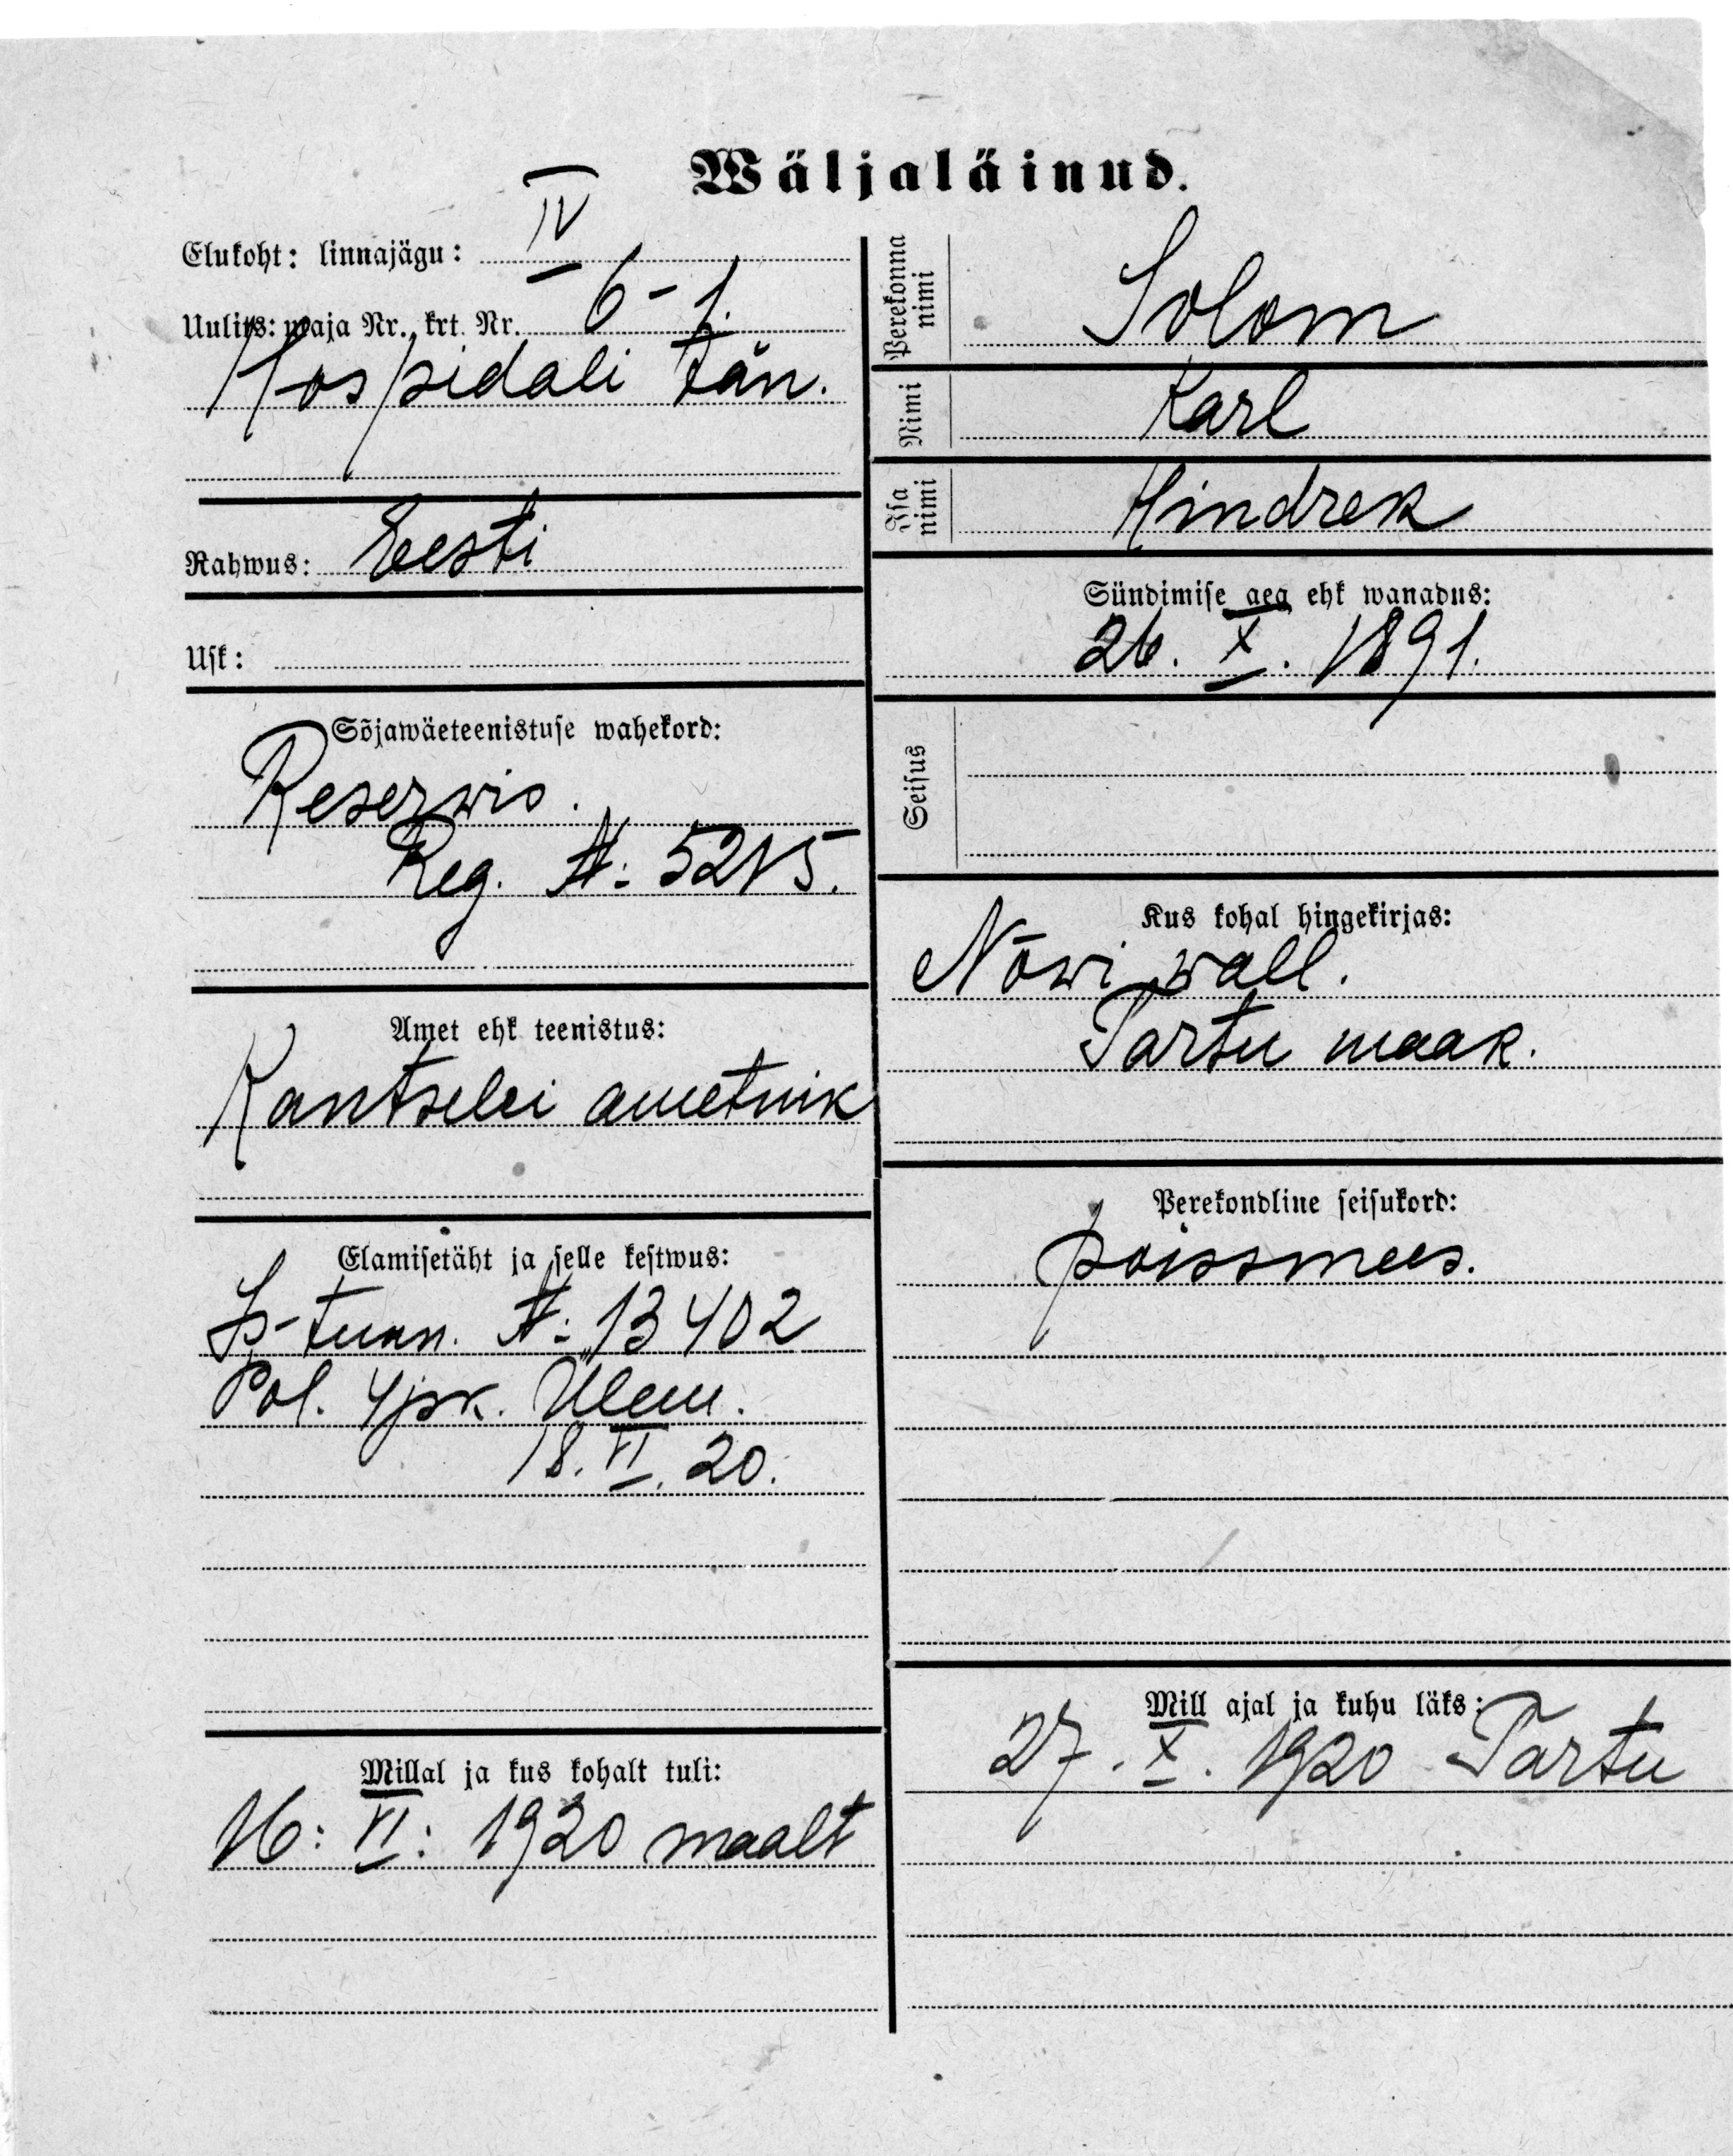 Wäljaläinud.
Elukoht: linnajägu: IV
Uulits: maja Nr., krt. Nr. 6-1.
Hospidali tän.
Rahwus: Eesti
Usk:
Sõjawäeteenistuse wahekord:
Reserwis.
Reg. №: 5215.
Amet ehk teenistus:
Kantselei ametnik
Elamisetäht ja selle kestwus:
Is-tunn. №: 13402
Pol. 4jsk. Ülem.
18. VI. 20.
Millal ja kus kohalt tuli:
16: VI: 1920 maalt
Perekonna nimi Solom
Nimi Karl
Isa nimi Hindrek
Sündimise aeg ehk wanadus:
26. X. 1891.
Seisus
Kus kohal hingekirjas:
Nõwi wall.
Tartu maak.
Perekondline seisukord:
poissmees.
Mill ajal ja kuhu läks:
27. X. 1920 Tartu